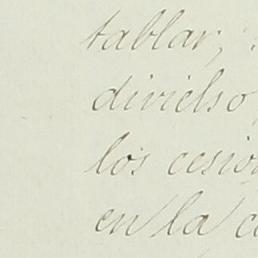 tablar,
divielso
los cesio
en la c